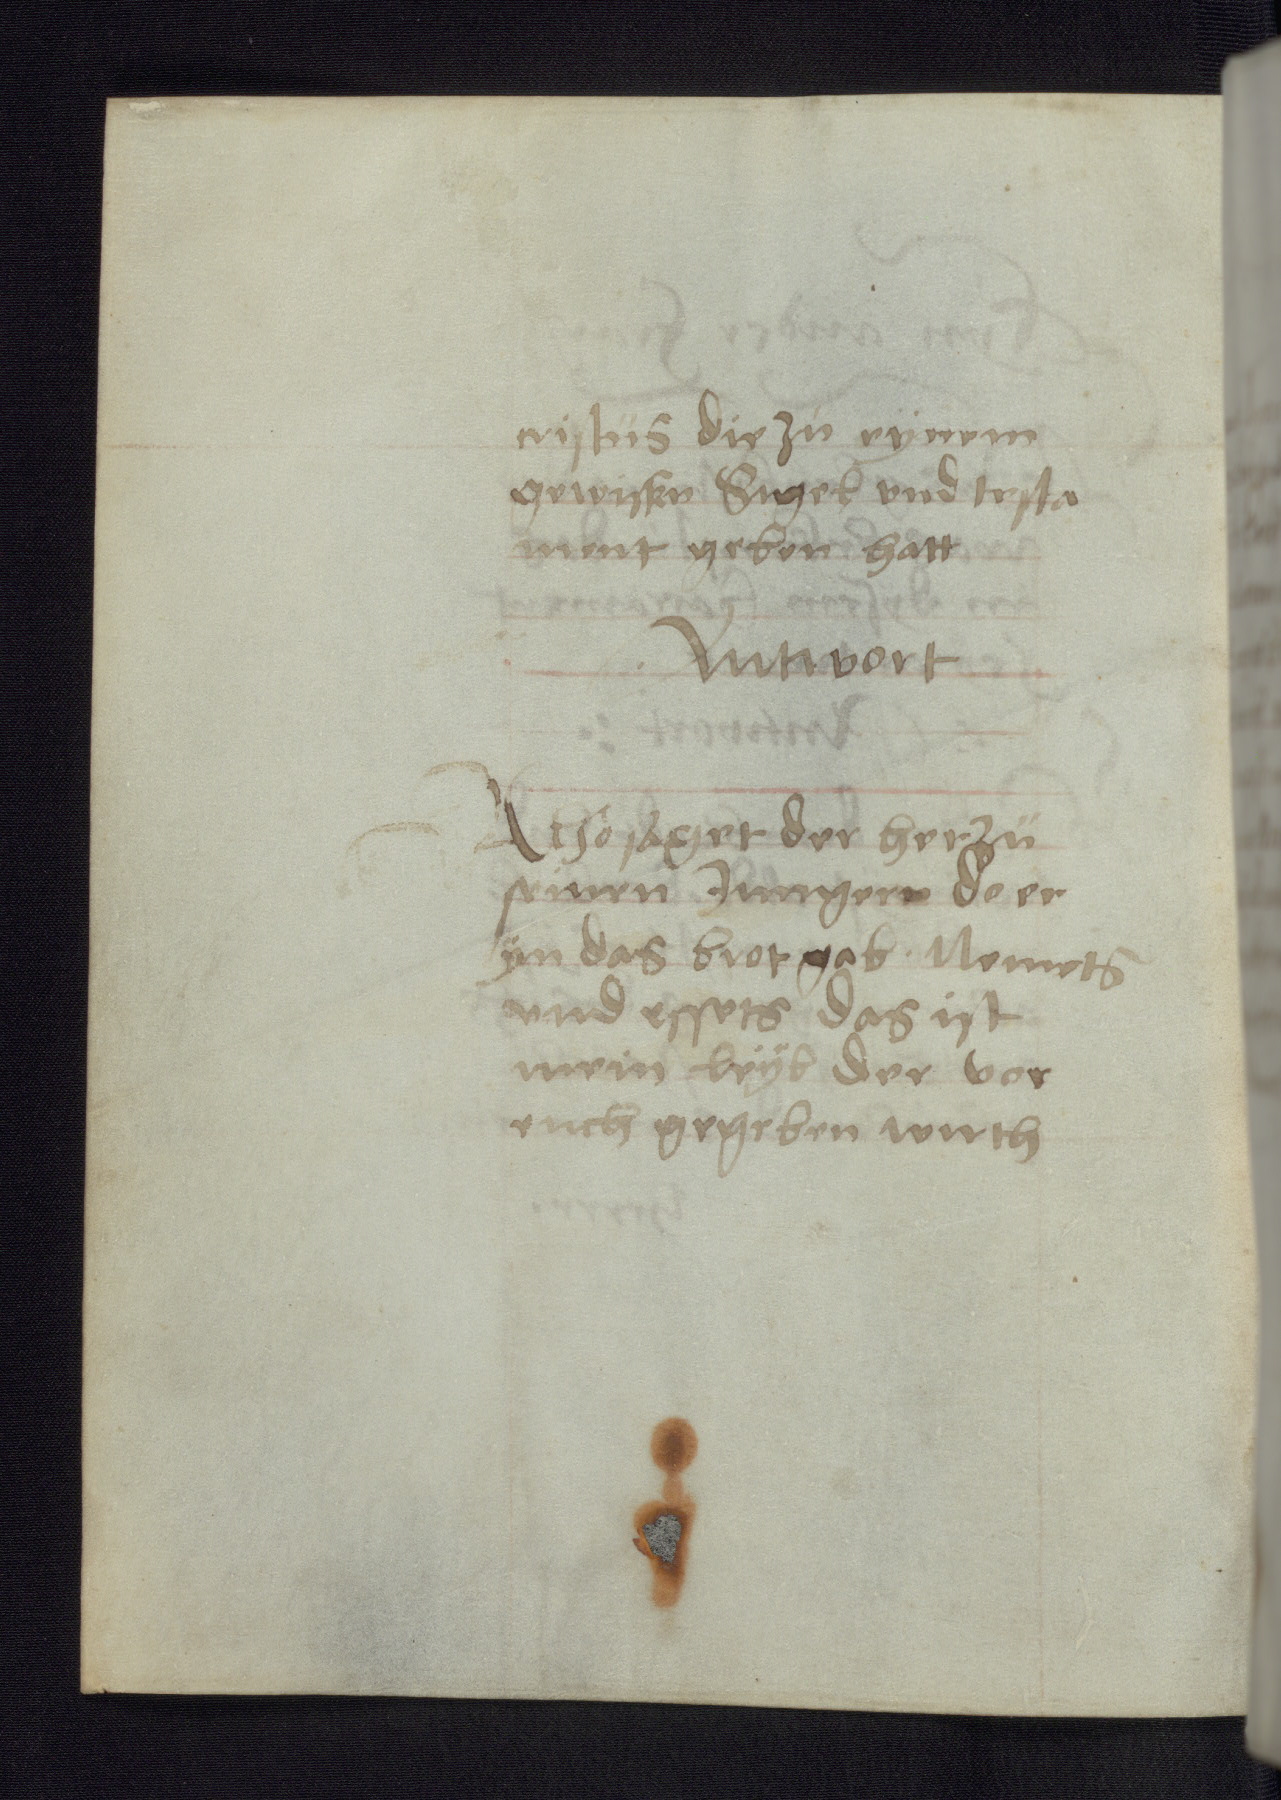 cristüs die zü eÿnem
gewissen Sigel vnd testa
ment geben hatt
Antwort
Also saget der her zü
seinen Jungern do er
ÿn das brot gab · Nemets
vnd essets das ist
mein leÿb der vor
euch gegeben wirth